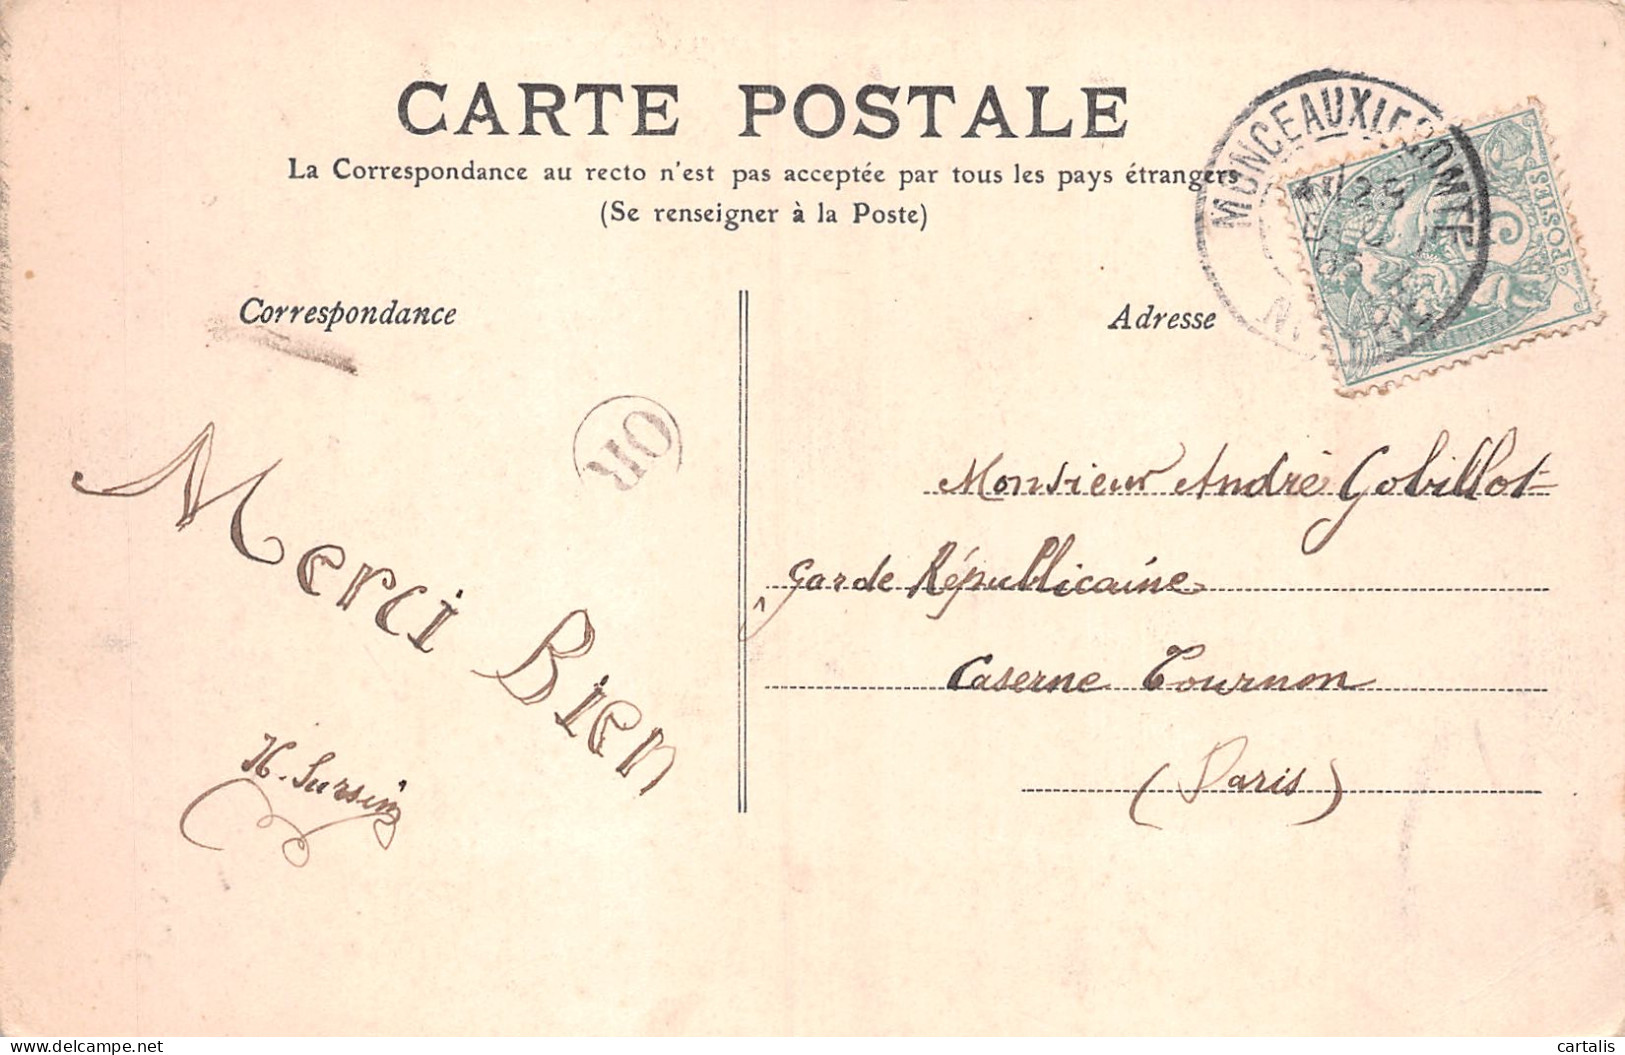 CARTE POSTALE
La Correspondance au recto n'est pas acceptée par tous les pays étrangers
(Se renseigner à la Poste)
MONCEAUX LE COMTE
POSTES
5
Correspondance
Adresse
OR
Merci Bien
Monsieur André Gobillot
Garde Républicaine
Caserne Tournon
(Paris)
cartalis
www.delcampe.net